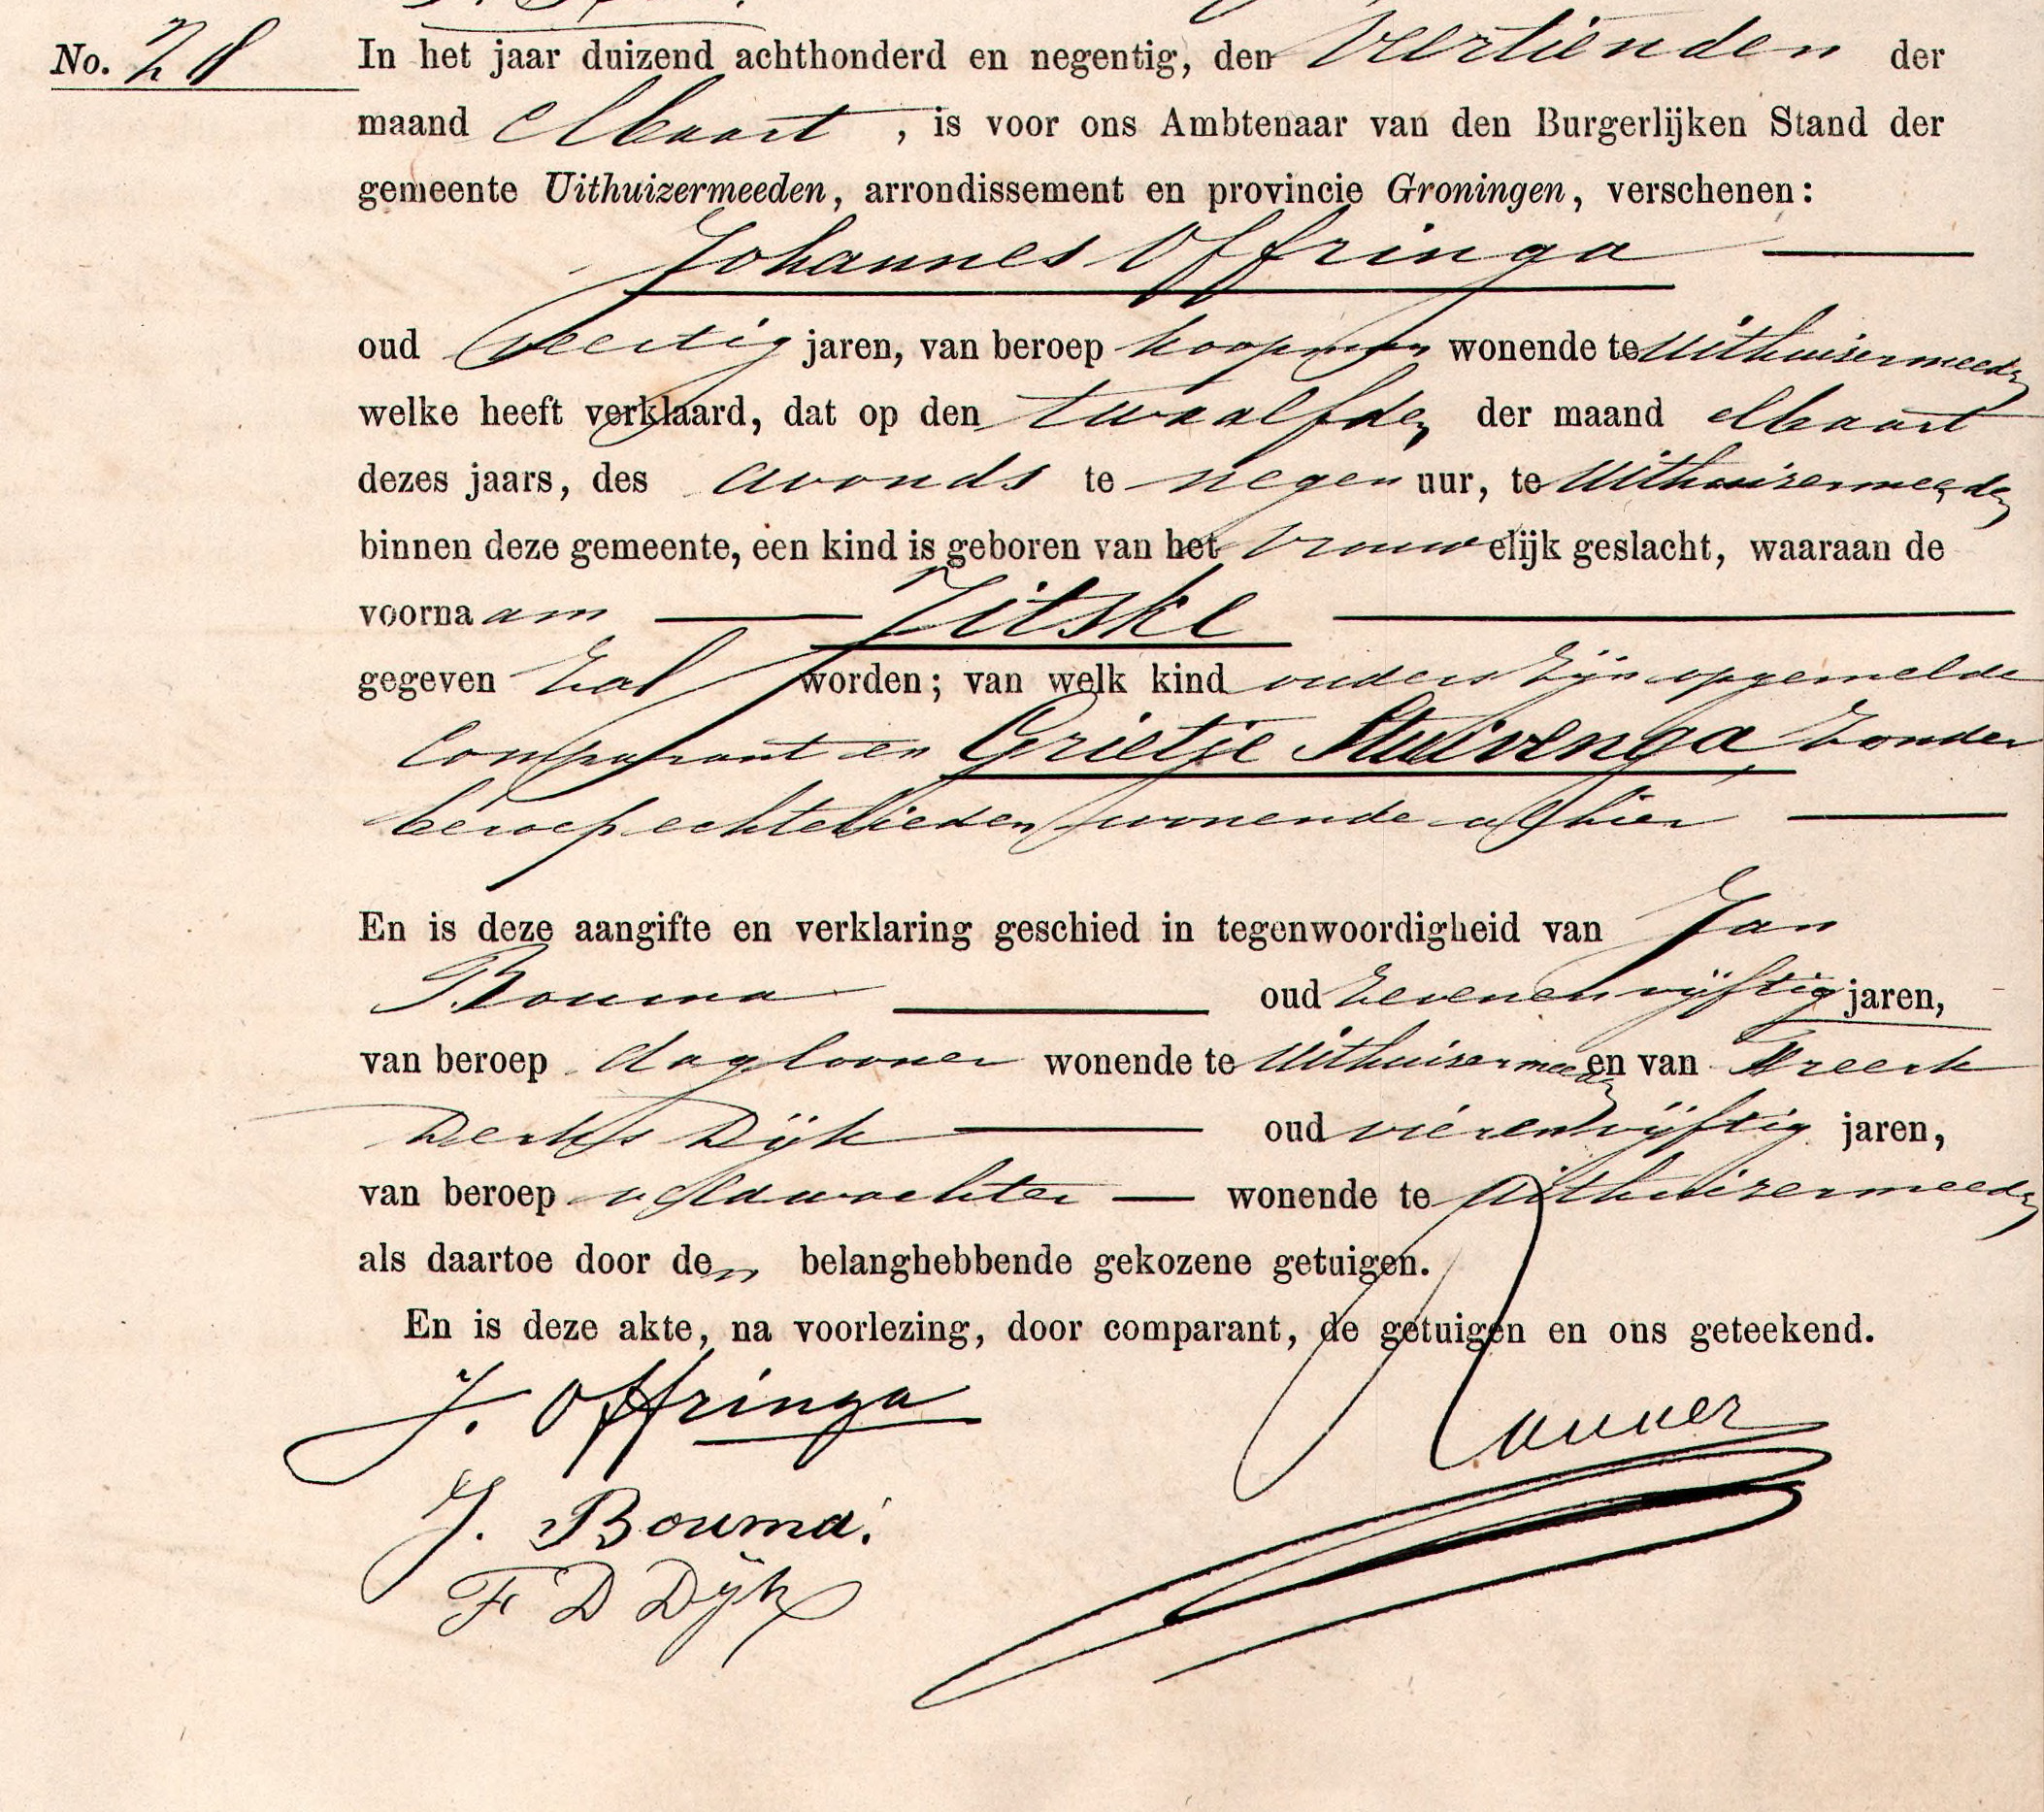 No. 28
In het jaar duizend achthonderd en negentig, den veertienden der
maand Maart, is voor ons Ambtenaar van den Burgerlijken Stand der
gemeente Uithuizermeeden, arrondissement en provincie Groningen, verschenen:
Johannes Offringa
oud veertig jaren, van beroep koopman wonende te Uithuizermeeden
welke heeft verklaard, dat op den twaalfden der maand Maart
dezes jaars, des avonds te negen uur, te Uithuizermeeden
binnen deze gemeente, een kind is geboren van het vrouwelijk geslacht, waaraan de
voornaam Jitske
gegeven zal worden; van welk kind ouders zijn opgemelde
Comparant en Grietje Stuivenga, zonder
beroep echtelieden wonende alhier
En is deze aangifte en verklaring geschied in tegenwoordigheid van Jan
Bouma oud zevenenvijftig jaren,
van beroep daglooner wonende te Uithuizermeeden en van Freerk
Derks Dijk oud vierenvijftig jaren,
van beroep veldwachter wonende te Uithuizermeeden
als daartoe door den belanghebbende gekozene getuigen.
En is deze akte, na voorlezing, door comparant, de getuigen en ons geteekend.
J. Offringa
J. Bouma.
F D Dijk